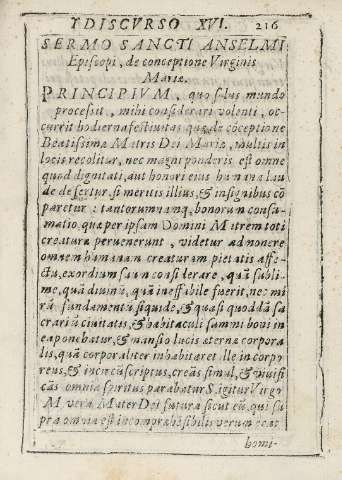 Y DISCVRSO XVI. 216
SERMO SANCTI ANSELMI
Episcopi, de conceptione Virginis
Mariæ.
PRINCIPIVM, quo salus mundo
processit, mihi considerari volenti, oc-
currit hodierna festiuitas quæ de cōceptione
Beatissimæ Matris Dei Mariæ, multis in
locis recolitur, nec magni ponderis est omne
quod dignitati, aut honori eius humana lau
de defertur, si meritis illius, & insignibus cō
paretur: tantorum namq, bonorum consu-
matio, quæ per ipsam Domini Matrem toti
creaturæ peruenerunt, videtur admonere
omnem humanam creaturam pietatis affe-
ctu, exordium suum considerare, quā subli-
me, quā diuinū, quā ineffabile fuerit, nec mi
rū. fundamentū siquidē, & quasi quoddā sa
crariū ciuitatis, & habitaculi summi boni in
ea ponebatur, & mansio lucis æternæ corpora
lis, quā corporaliter inhabitaret ille incorpo
reus, & incircūscriptus, creās simul, & viuifi
cās omnia spiritus parabatur. Si igitur Virgo
M. vera Mater Dei futura sicut eū, qui su
pra omnia est incomprahēsibilis verum
homi-